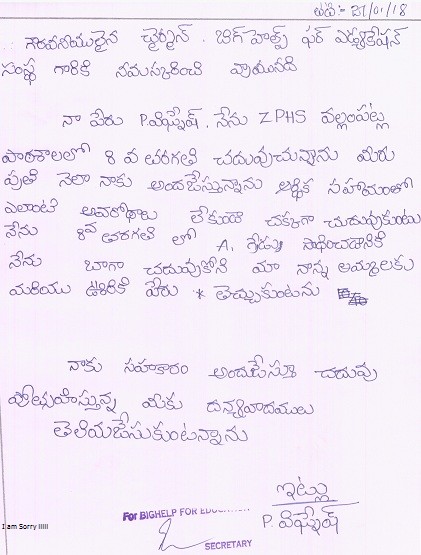 తేది:- 27/01/18
గౌరవనీయులైన చైర్మన్. బిగ్ హెల్ప్ ఫర్ ఎడ్యుకేషన్
సంస్థ గారికి నమస్కరించి వ్రాయునది
నా పేరు P.విఘ్నేష్. నేను ZPHS వల్లంపట్ల
పాఠశాలలో 8 వ తరగతి చదువుచున్నాను మీరు
ప్రతి నెలా నాకు అందజేస్తున్నాను ఆర్థిక సహాయంతో
ఎలాంటి అవరోధాలు లేకుండా చక్కగా చదువుకుంటు
నేను 8వ తరగతి లో A, గ్రేడ్ను సాధించడానికి
నేను బాగా చదువుకోని మా నాన్న అమ్మలకు
మరియు ఊరికి పేరు * తెచ్చుకుంటను
నాకు సహకారం అందజేస్తూ చదువు
పోత్సహిస్తున్న మీకు దన్యవాదములు
తెలియజేసుకుంటన్నాను
ఇట్లు
P. విఘ్నేష్
For BIGHELP FOR EDUCATION
SECRETARY
I am Sorry IIIII